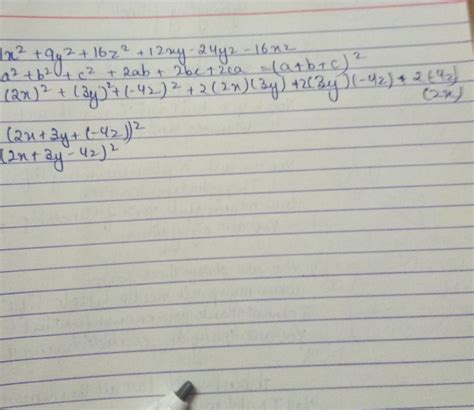 x² + 9y² + 16z² + 12xy - 24yz - 16xz
a² + b² + c² + 2ab + 2bc + 2ca = (a+b+c)²
(2x)² + (3y)² + (-4z)² + 2(2x)(3y) + 2(3y)(-4z) + 2(-4z)
(2x)
(2x + 3y + (-4z))²
(2x + 3y - 4z)²